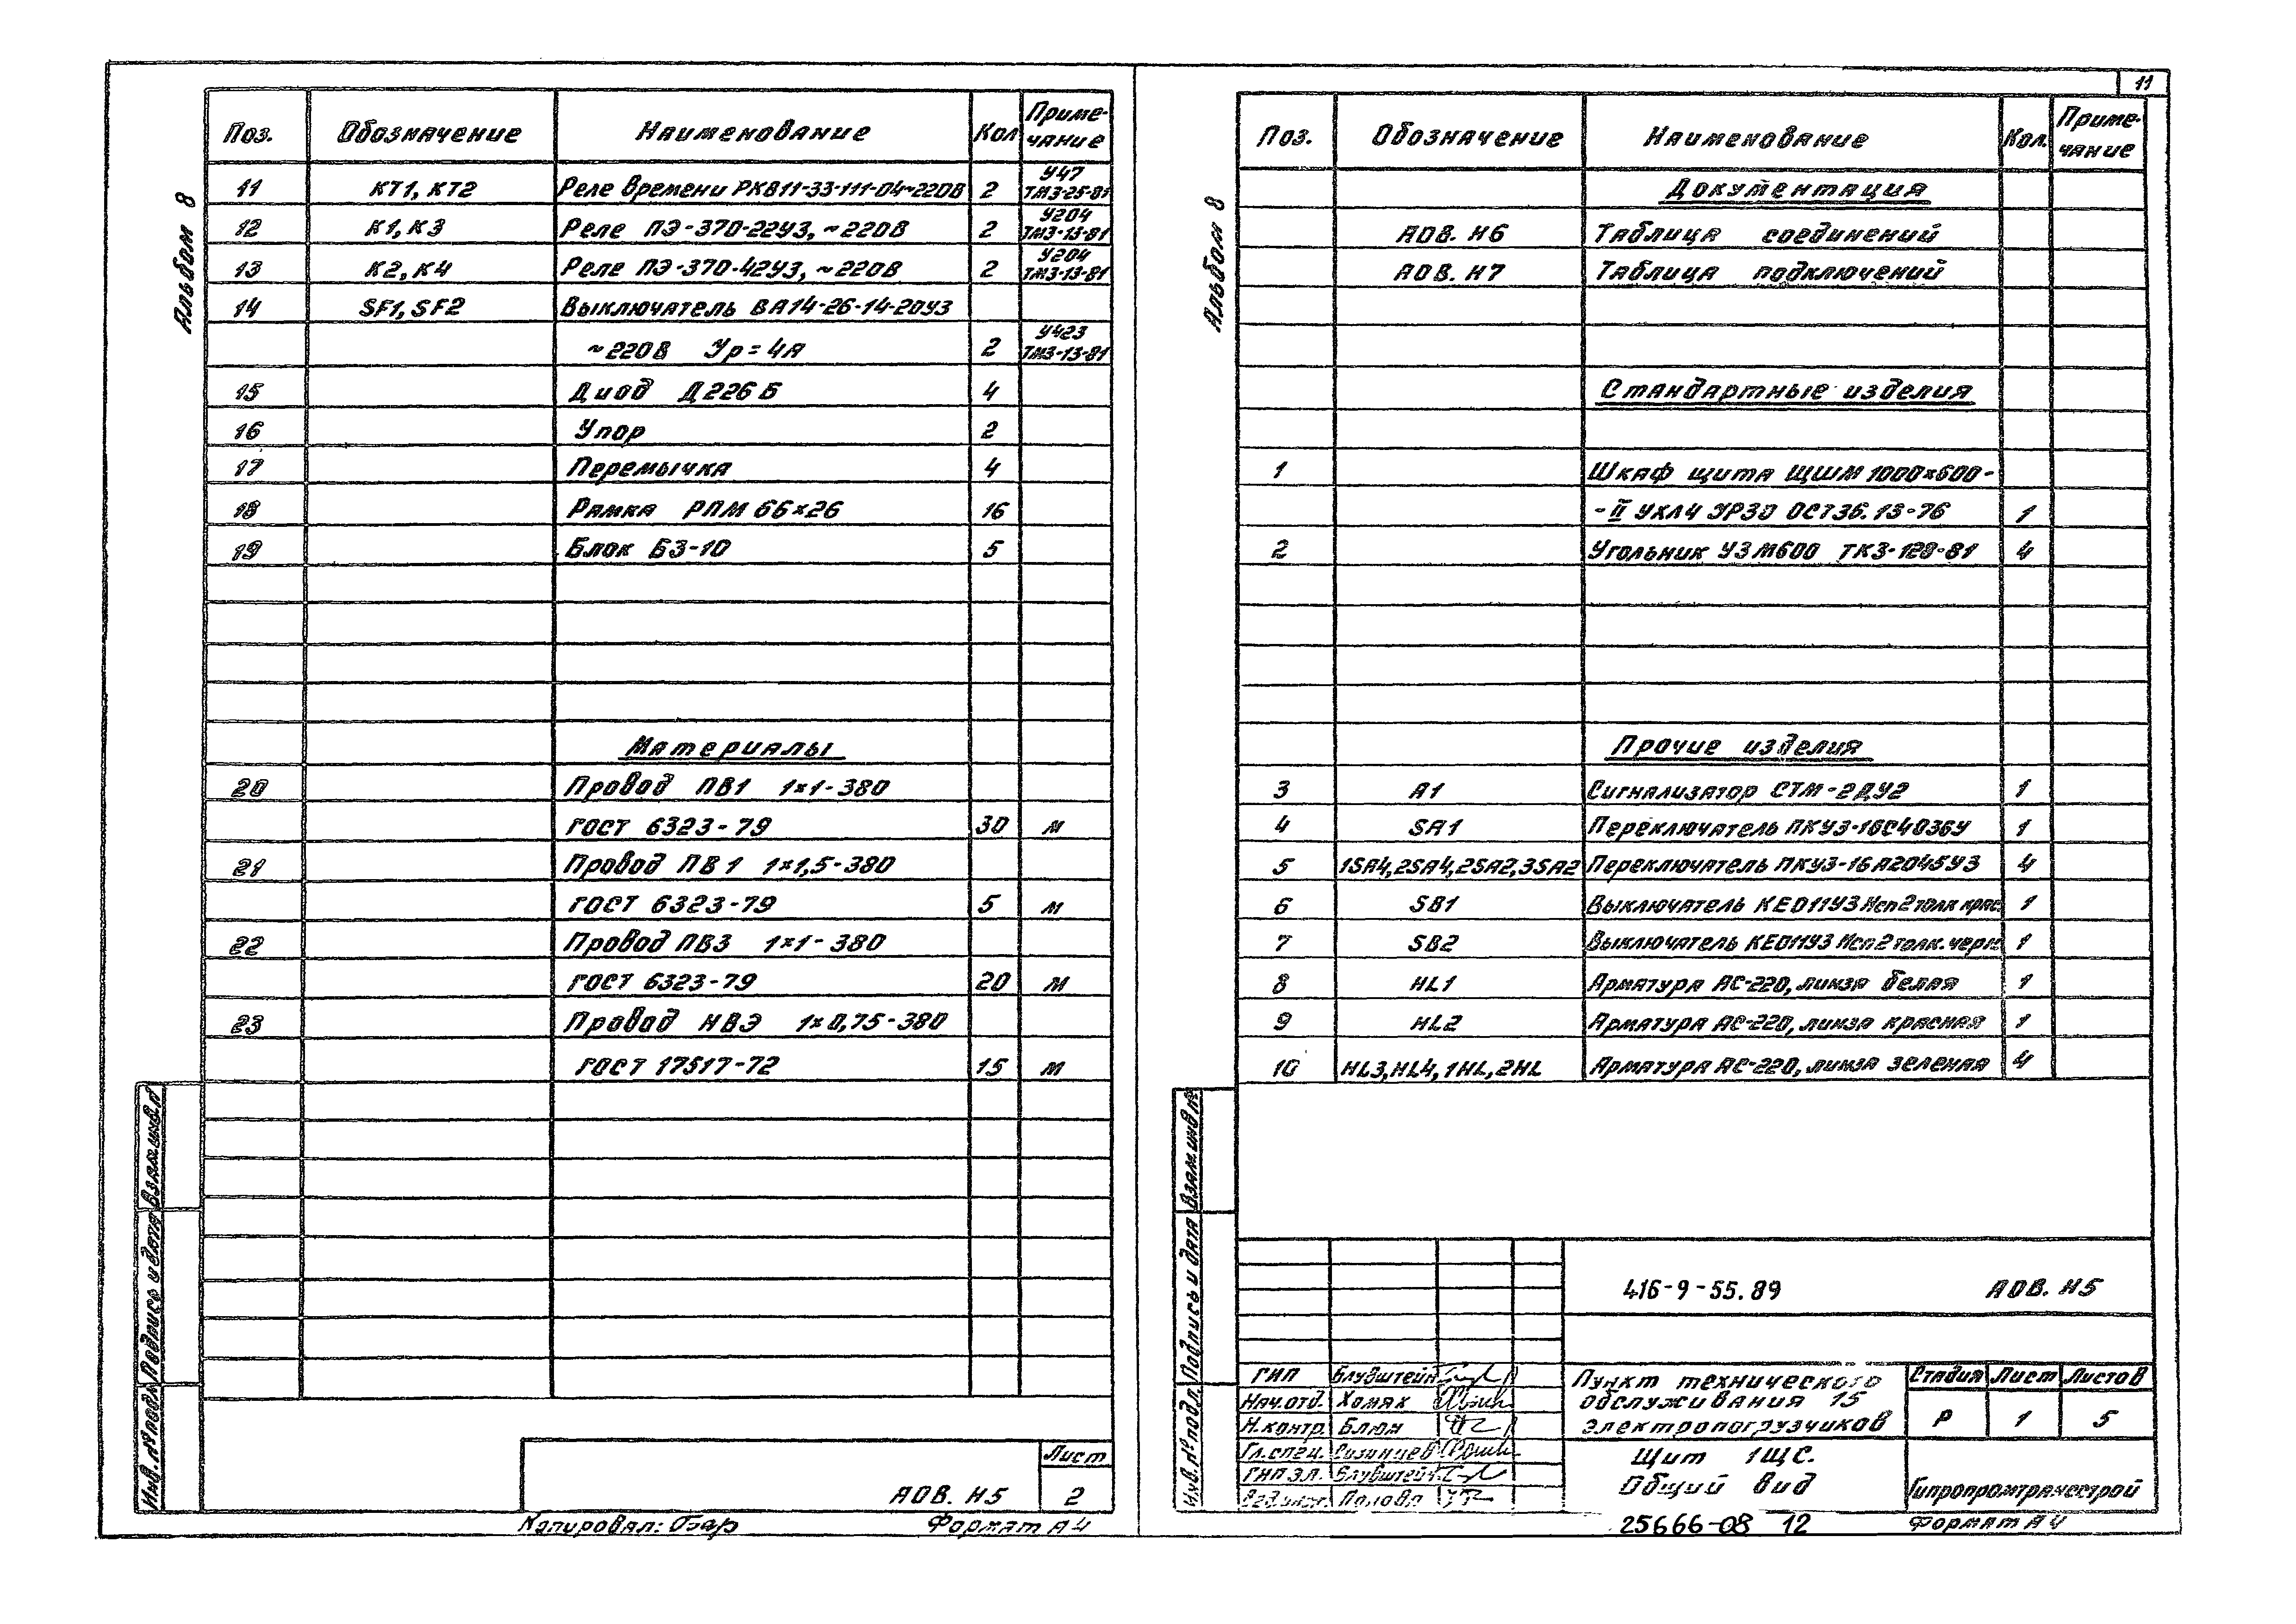 11
Альбом 8
Поз. Обозначение Наименование Кол Примечание
11 КТ1, КТ2 Реле времени РКВ11-33-111-04~220В 2 У47 ТМ3-25-81
12 К1, К3 Реле ПЭ-370-22У3, ~220В 2 У204 ТМ3-13-81
13 К2, К4 Реле ПЭ-370-42У3, ~220В 2 У204 ТМ3-13-81
14 SF1, SF2 Выключатель ВА14-26-14-20У3
~220В Ур=4А 2 У423 ТМ3-13-81
15 Диод Д226Б 4
16 Упор 2
17 Перемычка 4
18 Рамка РПМ 66×26 16
19 Блок БЗ-10 5
Материалы
20 Провод ПВ1 1×1-380
ГОСТ 6323-79 30 м
21 Провод ПВ1 1×1,5-380
ГОСТ 6323-79 5 м
22 Провод ПВ3 1×1-380
ГОСТ 6323-79 20 м
23 Провод НВЭ 1×0,75-380
ГОСТ 17517-72 15 м
Взам.инв.№
Подпись и дата
Инв.№ подл.
Лист
АОВ. Н5 2
Копировал: Формат А4
Альбом 8
Поз. Обозначение Наименование Кол. Примечание
Документация
АОВ. Н6 Таблица соединений
АОВ. Н7 Таблица подключений
Стандартные изделия
1 Шкаф щита ЩШМ 1000×600-
-II УХЛ4 УР30 ОСТ36.13-76 1
2 Угольник УЗМ600 ТК3-128-81 4
Прочие изделия
3 А1 Сигнализатор СТМ-2ДУ2 1
4 SA1 Переключатель ПКУ3-16С4036У 1
5 1SA4, 2SA4, 2SA2, 3SA2 Переключатель ПКУ3-16А2045У3 4
6 SB1 Выключатель КЕ011У3 Исп2 толк крас. 1
7 SB2 Выключатель КЕ011У3 Исп2 толк. черн 1
8 HL1 Арматура АС-220, линза белая 1
9 HL2 Арматура АС-220, линза красная 1
10 HL3, HL4, 1HL, 2HL Арматура АС-220, линза зеленая 4
Взам.инв.№
Подпись и дата
Инв.№ подл.
416-9-55.89 АОВ. Н5
ГИП Блувштейн
Нач.отд. Хомяк
Н.контр. Блюм
Гл.спец.
ГИП эл. Блувштейн
Попова
Пункт технического
обслуживания 15
электропогрузчиков
Стадия Лист Листов
Р 1 5
Щит 1ЩС.
Общий вид
Гипропромтрансстрой
25666-08 12 Формат А4